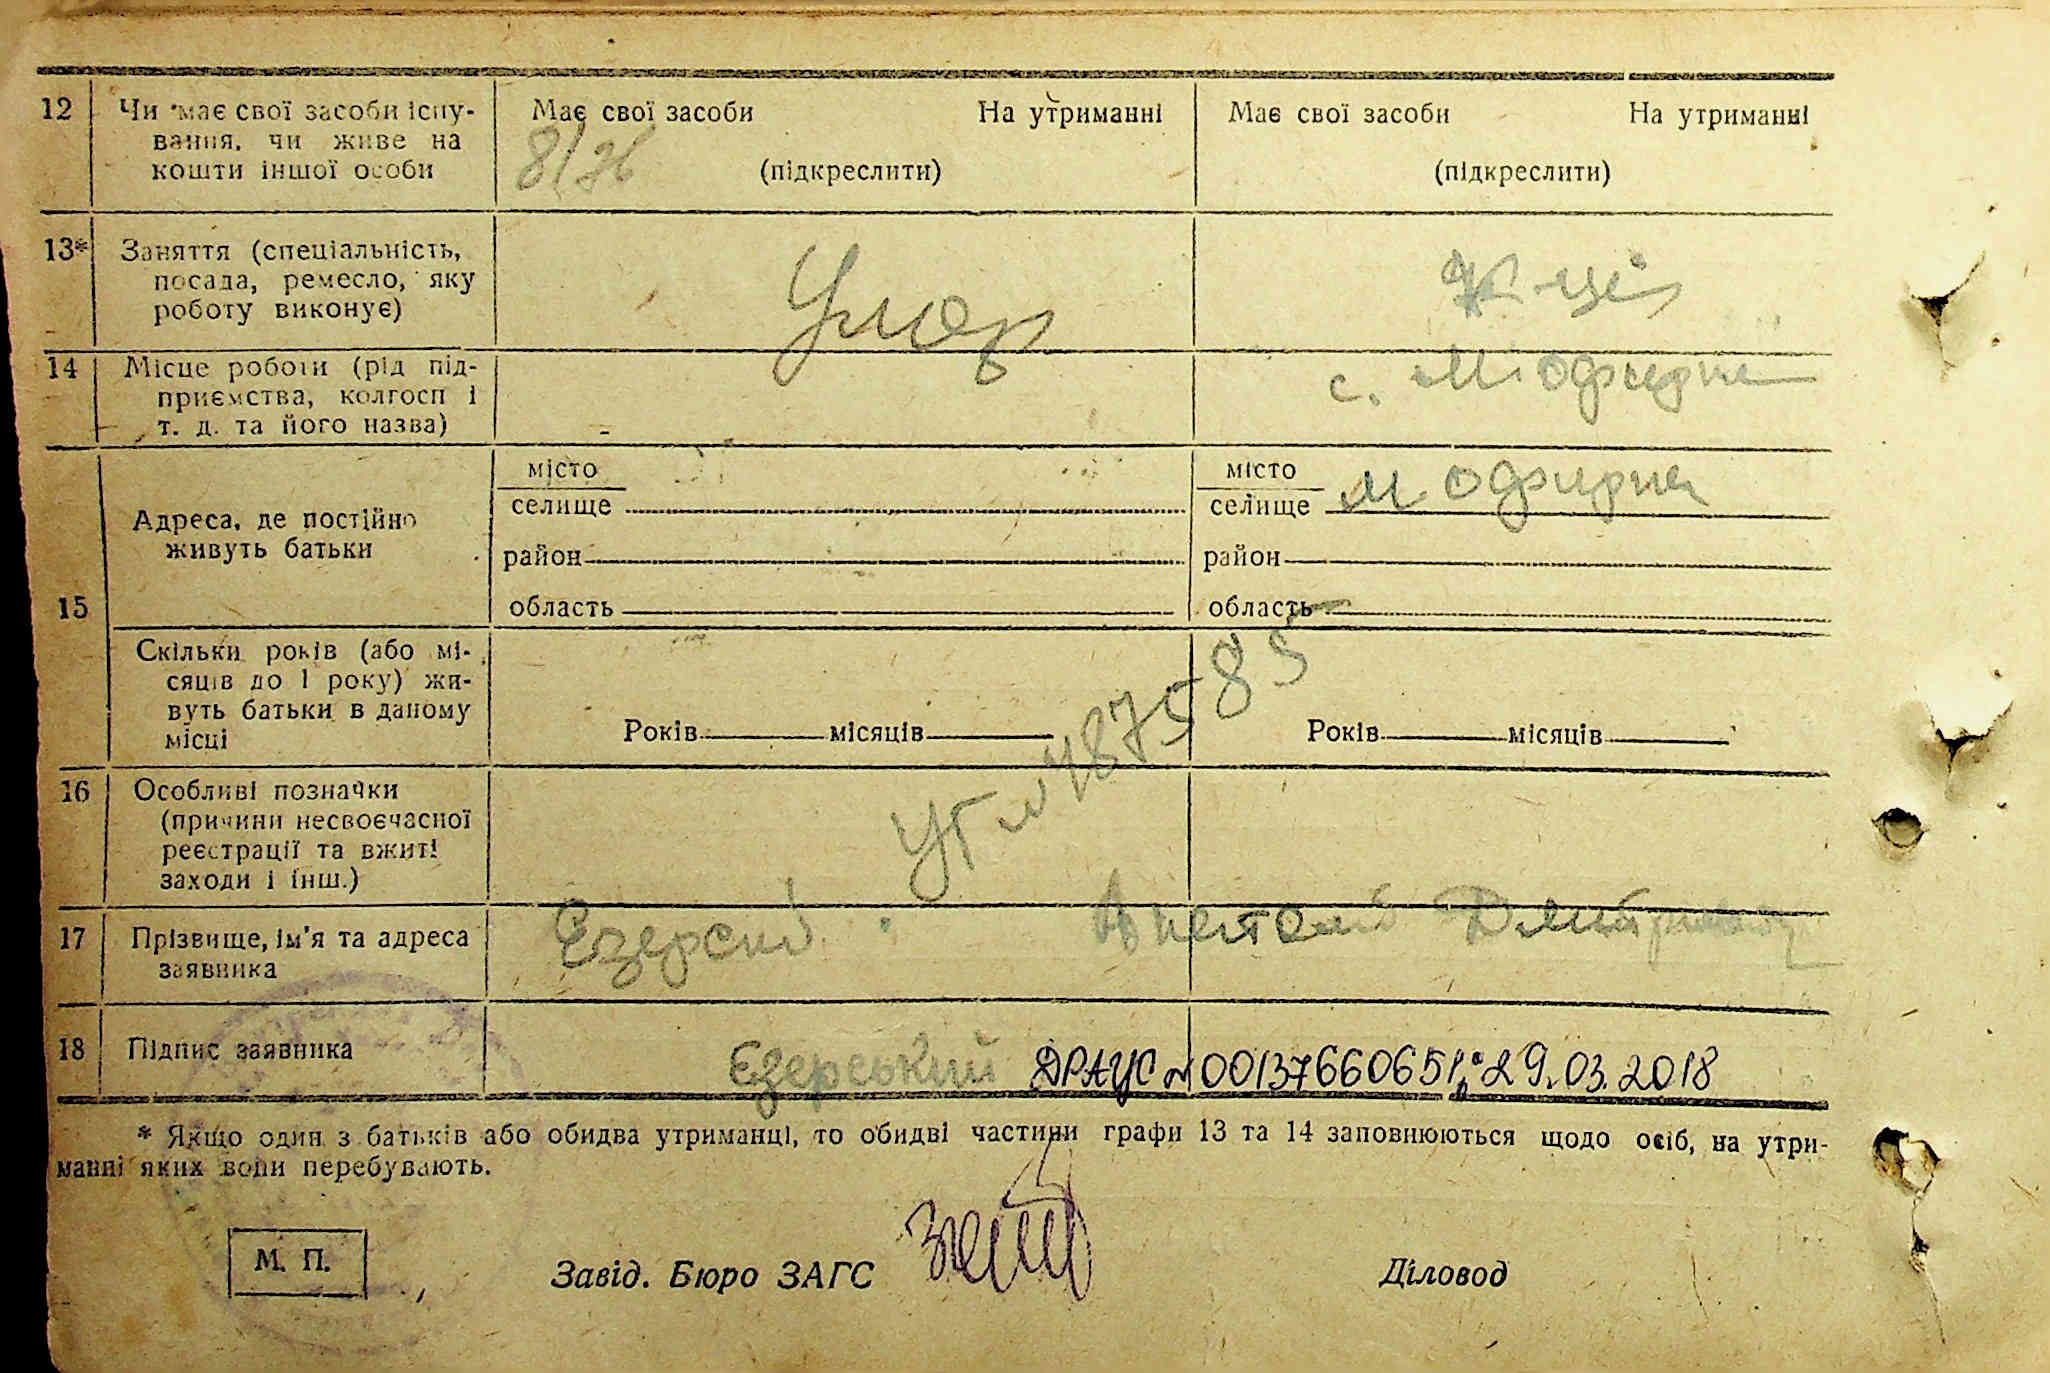 12 Чи має свої засоби існу-
вання, чи живе на
кошти іншої особи
Має свої засоби На утриманні
(підкреслити)
Має свої засоби На утриманні
(підкреслити)
13* Заняття (спеціальність,
посада, ремесло, яку
роботу виконує)
Умер
14 Місце роботи (рід під-
приємства, колгосп і
т. д. та його назва)
с.
15 Адреса, де постійно
живуть батьки
місто
селище
район
область
місто
селище
район
область
Скільки років (або мі-
сяців до 1 року) жи-
вуть батьки в даному
місці
Років місяців
Років місяців
487585
16 Особливі позначки
(причини несвоєчасної
реєстрації та вжиті
заходи і інш.)
17 Прізвище, ім'я та адреса
заявника
Єзерский Анатолий
18 Підпис заявника
Єзерський ДРАЦС № 00137660651 29.03.2018
* Якщо один з батьків або обидва утриманці, то обидві частини графи 13 та 14 заповнюються щодо осіб, на утри-
манні яких вони перебувають.
М. П.
Завід. Бюро ЗАГС
Діловод